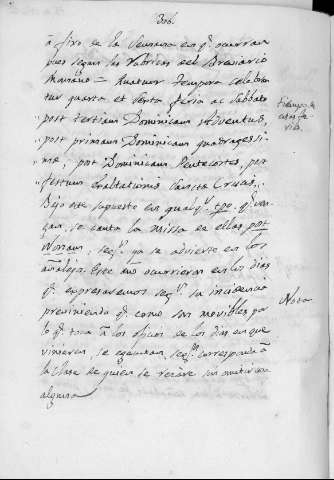 306.
à fixo, de la semana en q.e ocurran
pues segun las Rubricas del Breviario
Mariano = Quatuor tempora celebran
tur quarta et sexta feria ac sabbato
post tertiam Dominicam Adventus,
post primam Dominicam quadragessi
mæ, post Dominicam Pentecostes, post
festum exaltationis Sanctæ Crucis.
Bajo este supuesto en qualq.r tpo. q.e ven
gan, se canta la Missa de ellas post
Nonam, seg.n ya se advierte en los
dias q.e ocurrieren en los dias
q.e expresaremos seg.n su incidencia
previniendo q.e como son movibles por
lo q.e toca à los oficios de los dias en que
vinieren, se executan seg.n corresponda à
la clase de quien se rezàre sin mutacion
alguna
Tiempo de
Nota.